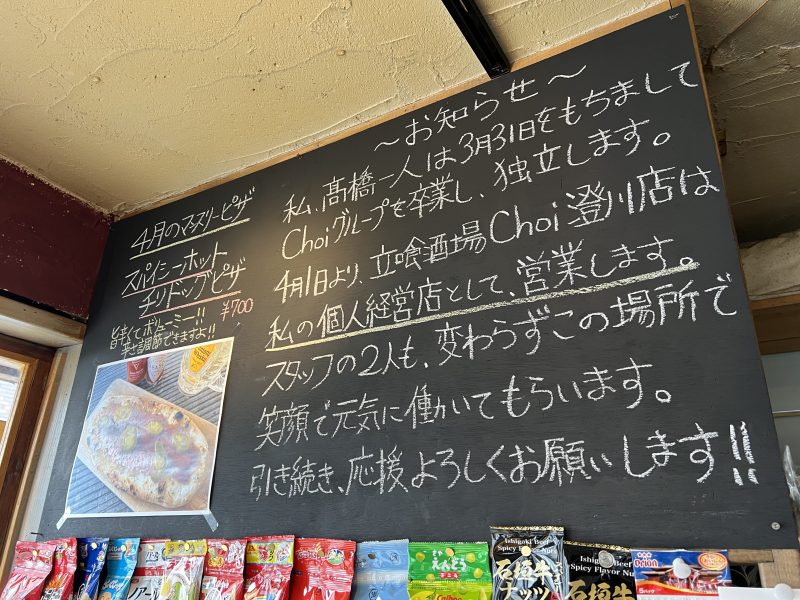 ～お知らせ～
私、髙橋一人は3月31日をもちまして
Choiグループを卒業し、独立します。
4月1日より、立喰酒場Choi澄川店は
私の個人経営店として、営業します。
スタッフの2人も、変わらずこの場所で
笑顔で元気に働いてもらいます。
引き続き、応援よろしくお願いします!!
4月のマンスリーピザ
スパイシーホット
チリドッグピザ
¥700
旨辛くてボリューミー!!
辛さ調節できますよ!!
えんどう
Ishigaki Beef
石垣牛
ナッツ
Ishigaki Beef
Spicy Flavor Nuts
石垣牛
Orion